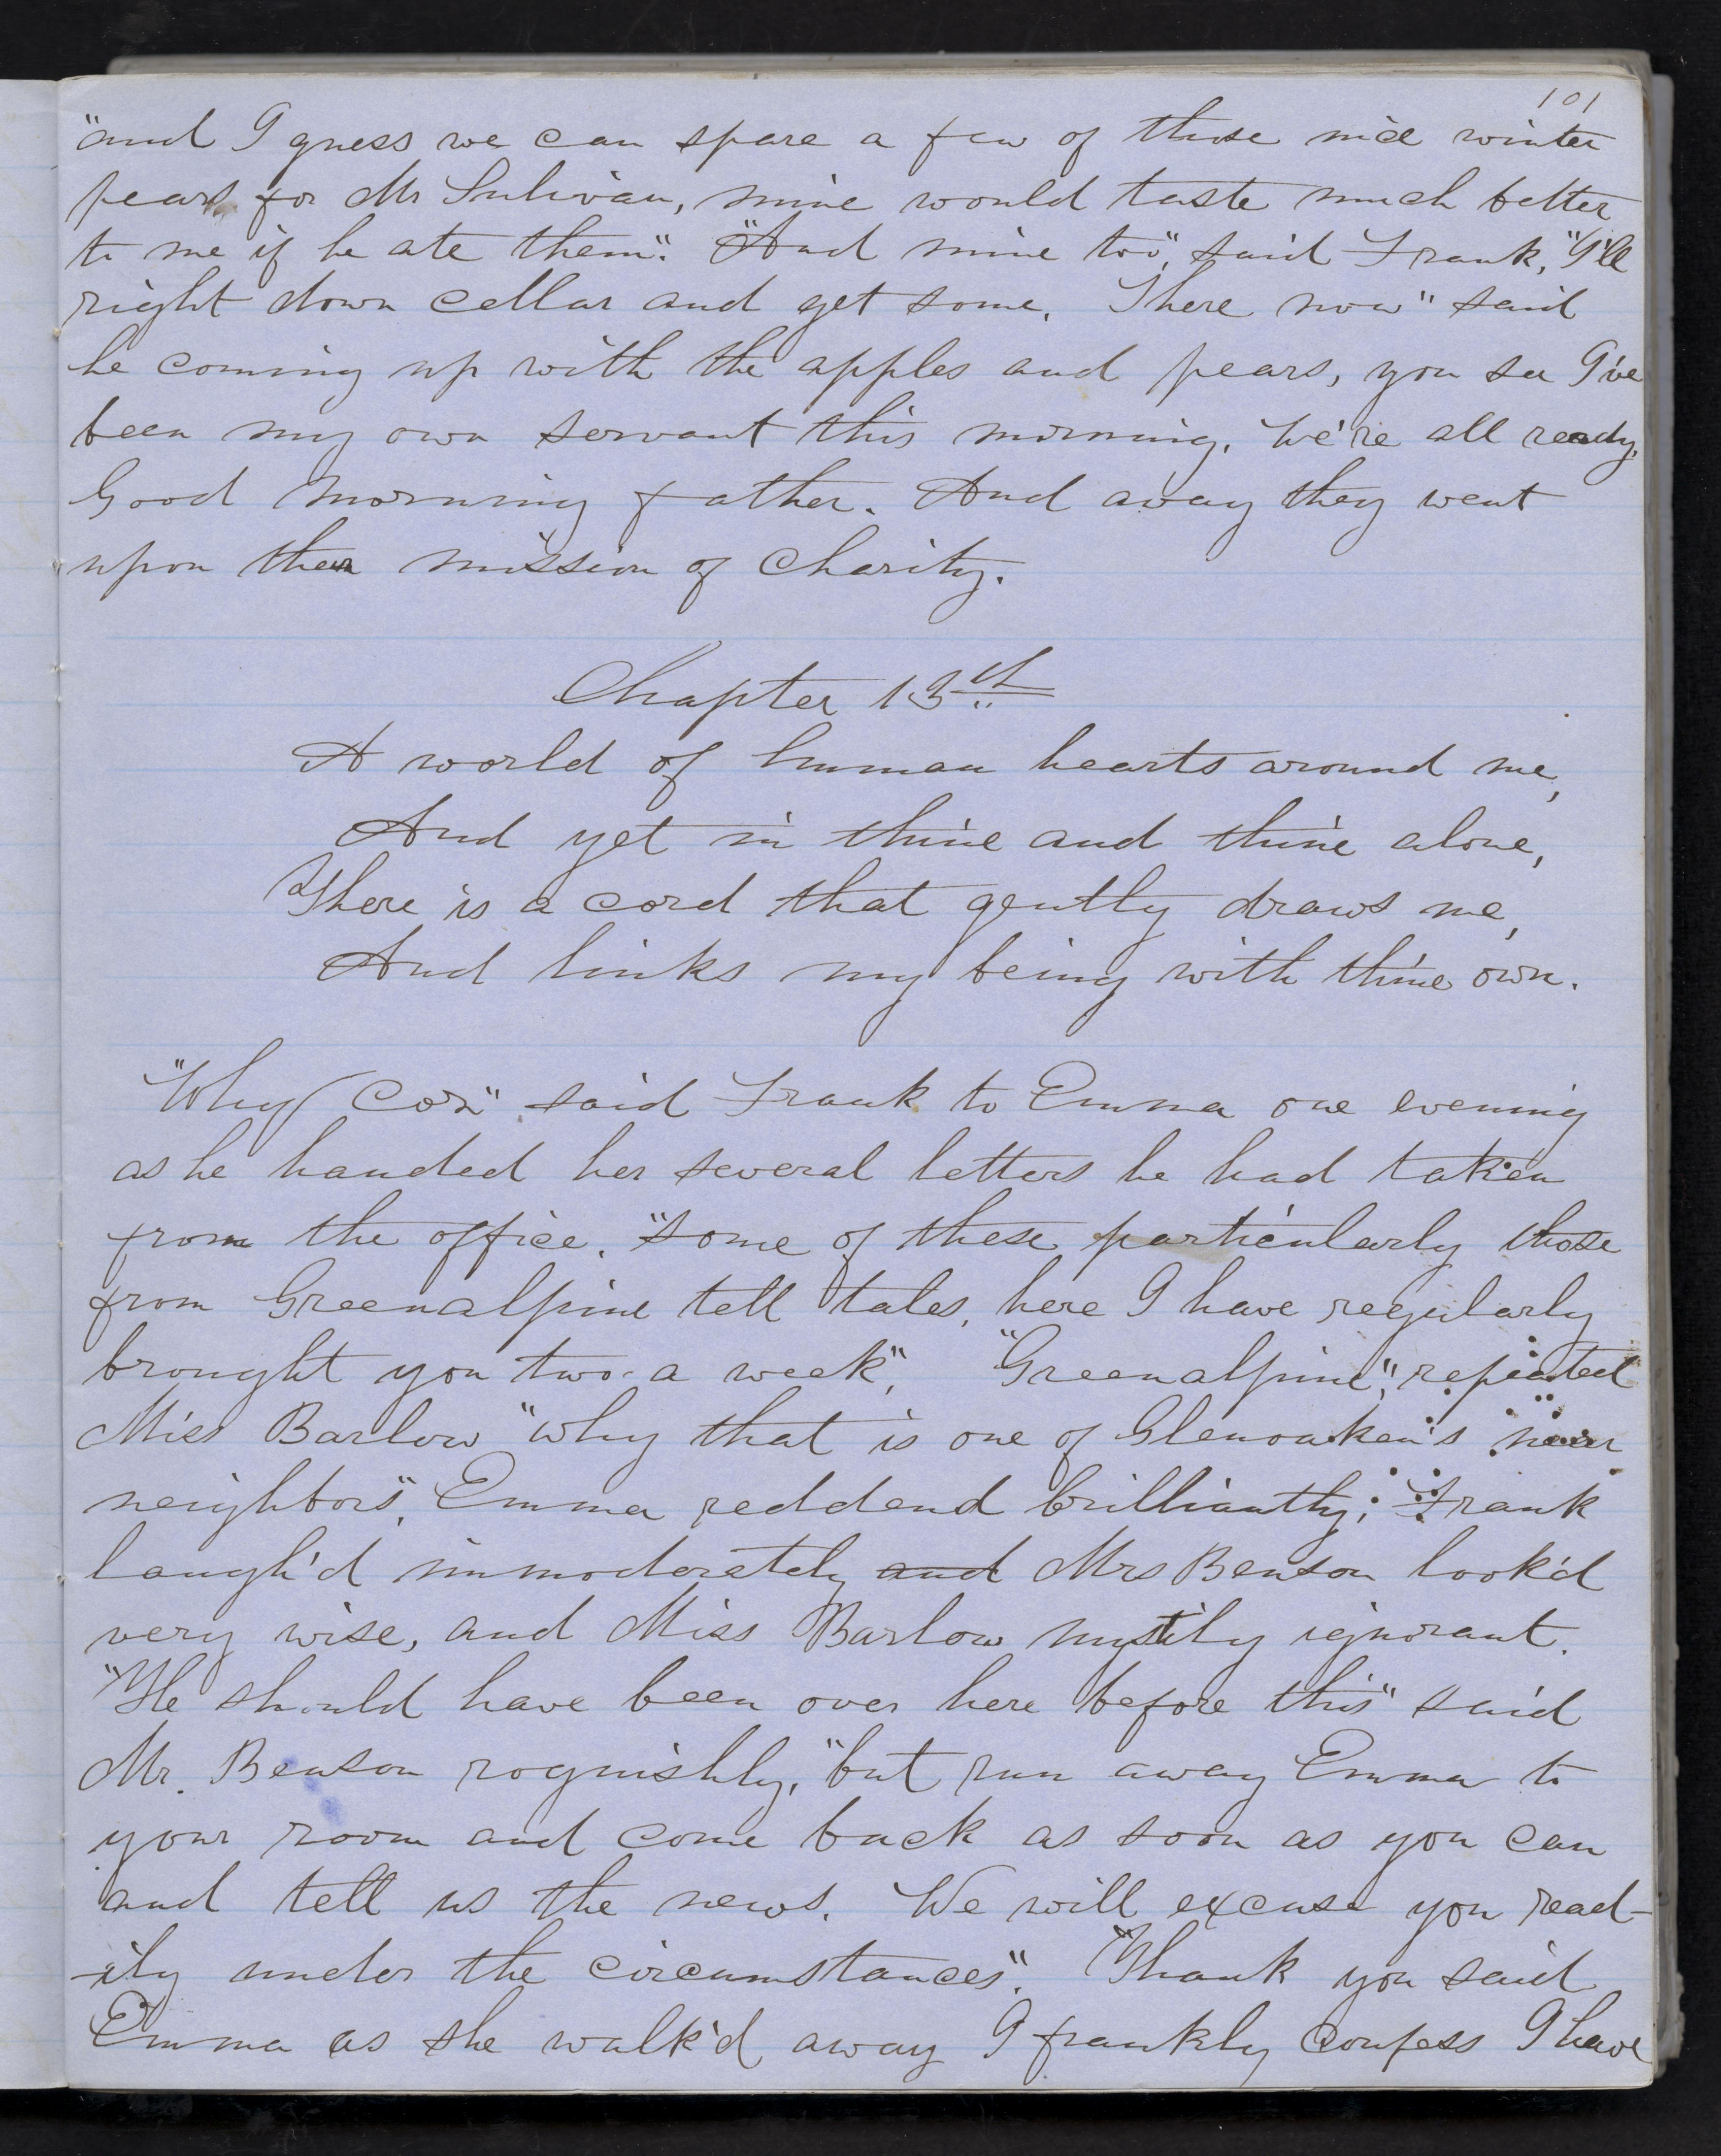 101
"and I guess we can spare a few of those nice winter
pears for Mr Sulivan, mine would taste much better
to me if he ate them". "And mine too", said Frank, "I'll
right down cellar and get some. There now" said
he coming up with the apples and pears, you see I've
been my own servant this morning. We're all ready.
Good morning father. And away they went
upon their mission of charity.
Chapter 13th
A world of human hearts around me,
And yet in thine and thine alone,
There is a cord that gently draws me,
And links my being with thine own.
"Why Coz" said Frank to Emma one evening
as he handed her several letters he had taken
from the office. "Some of these particularly those
from Greenalpine tell tales, here I have regularly
brought you two a week", "Greenalpine", repeated
Miss Barlow "why that is one of Glenoaken's near
neighbors", Emma reddend brilliantly; Frank
laugh'd immoderately and Mrs Benson look'd
very wise, and Miss Barlow mystily ignorant.
"He should have been over here before this" said
Mr. Benson roguishly, "but run away Emma to
your room and come back as soon as you can
and tell us the news. We will excuse you read-
-ily under the circumstances". "Thank you said
Emma as she walk'd away I frankly confess I have